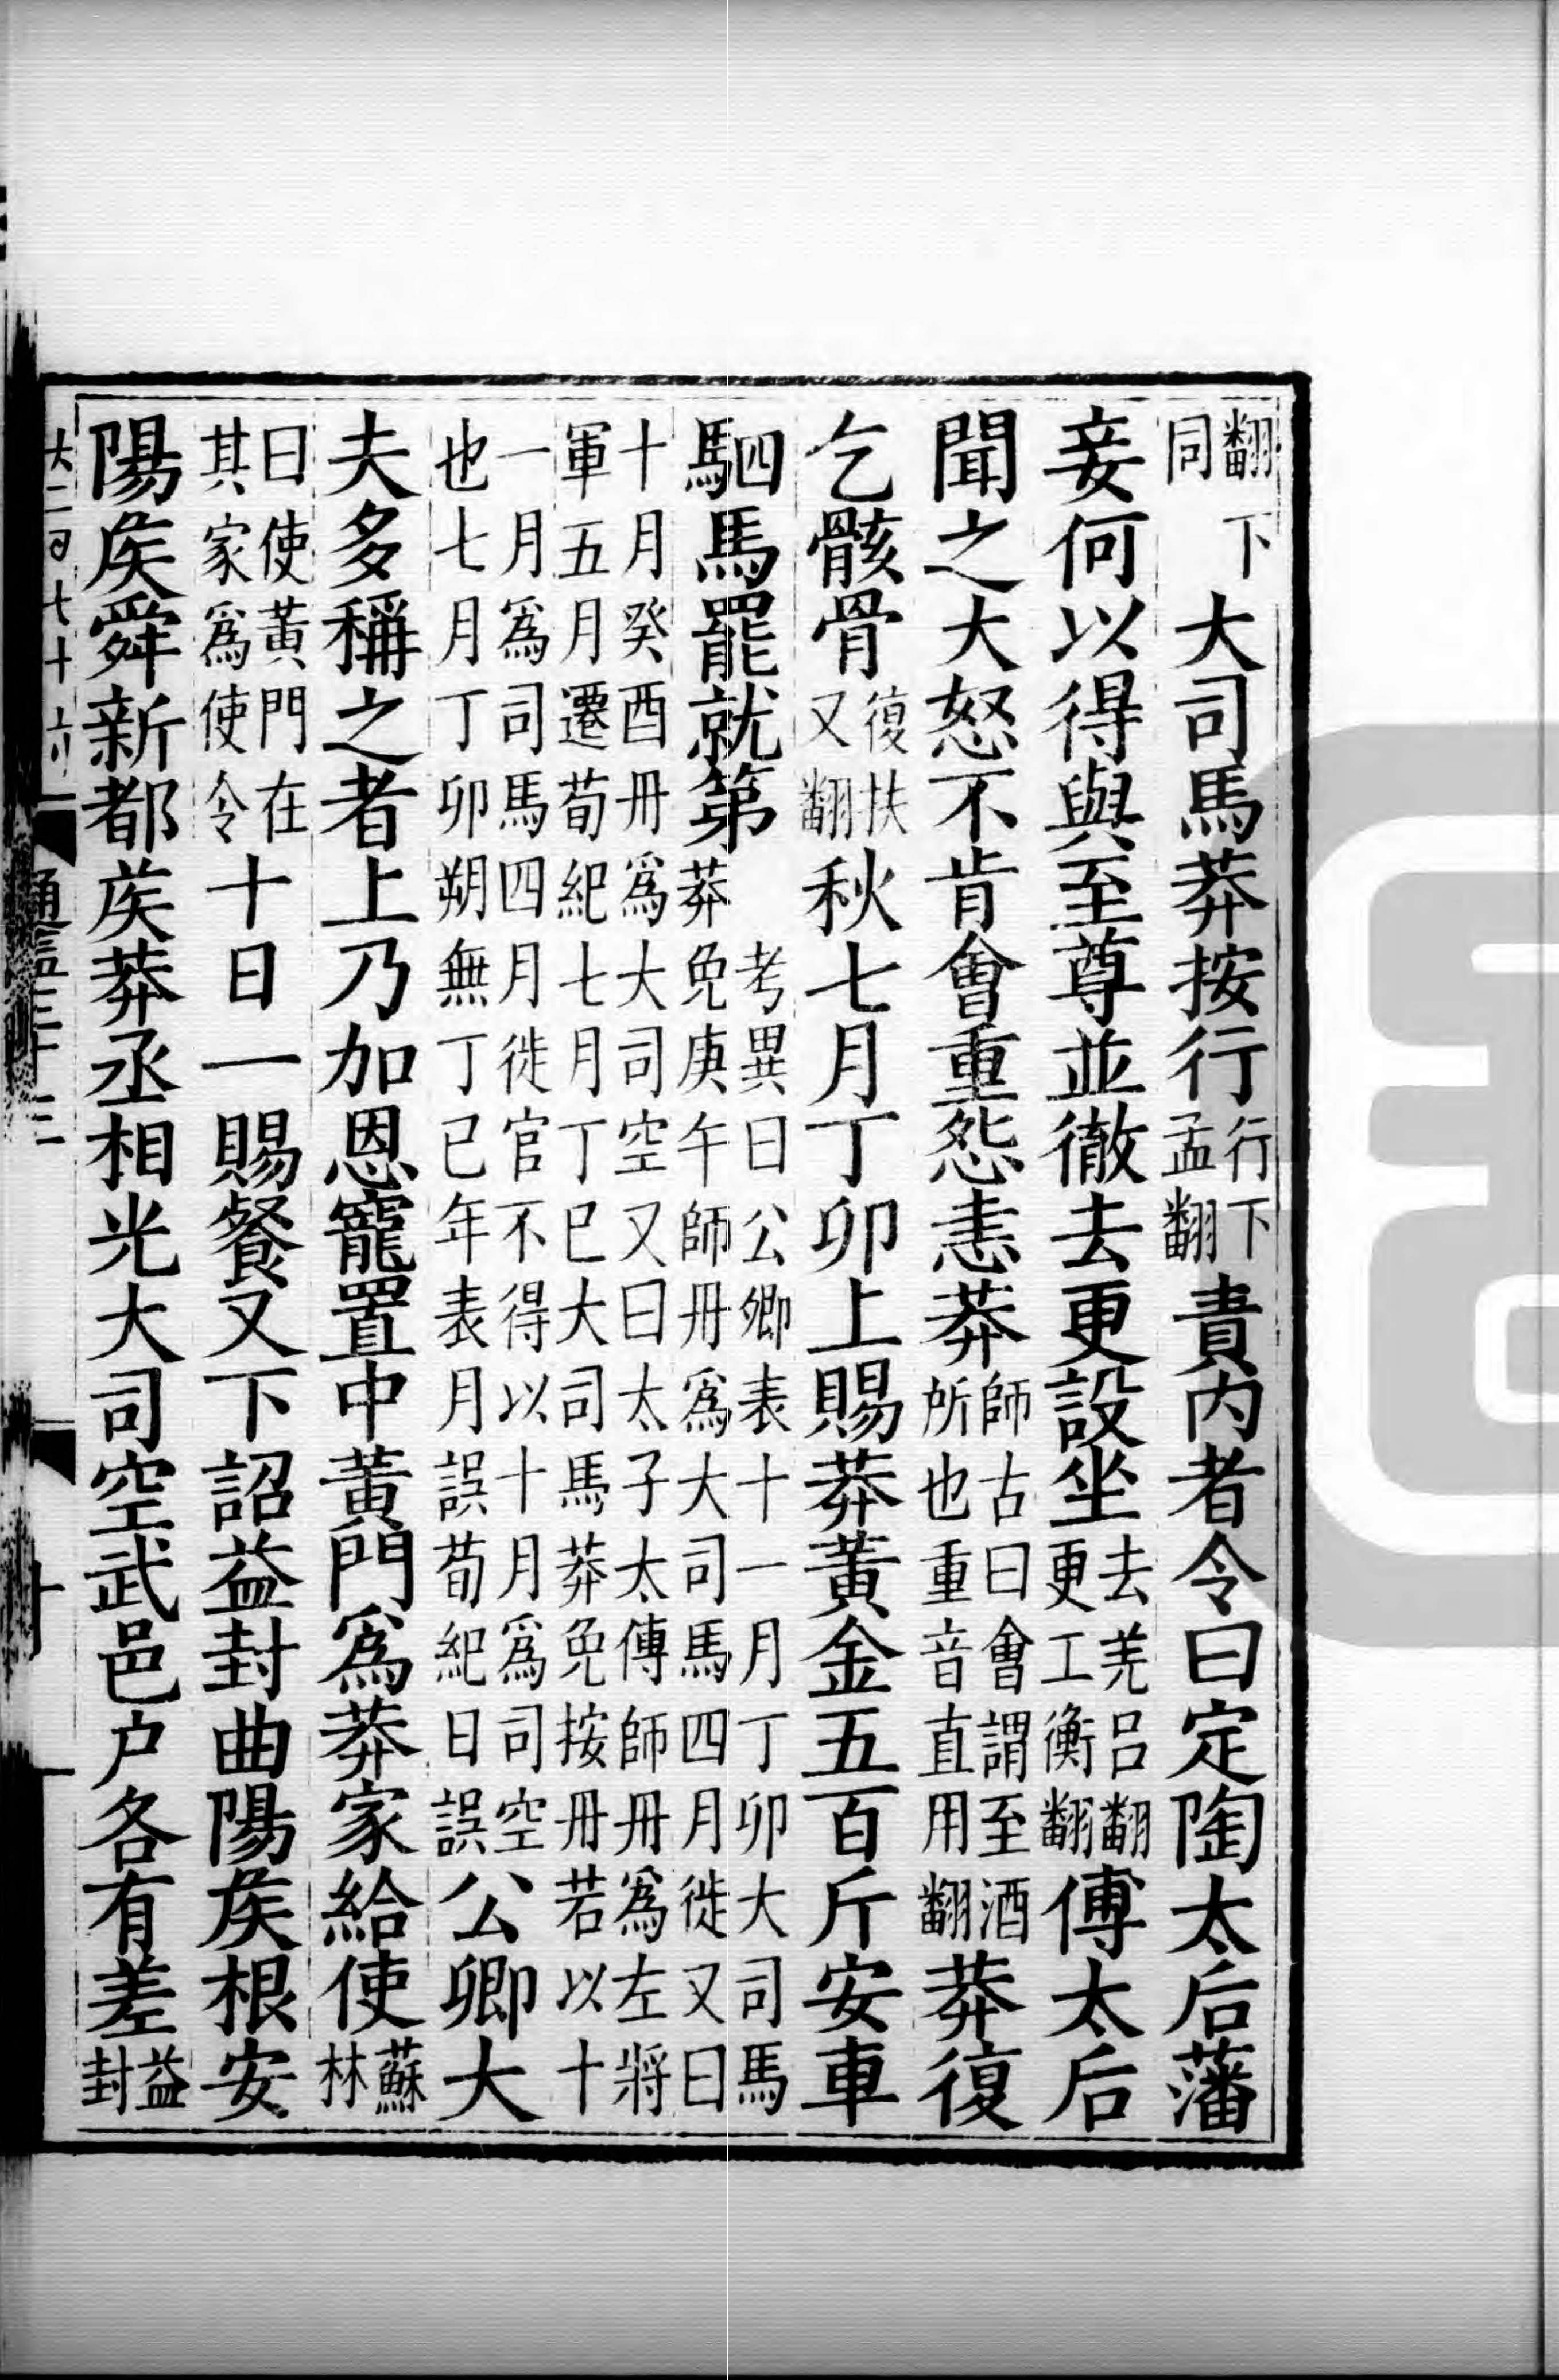 翻下同大司馬莽按行行下孟翻責内者令曰定陶太后藩
妾何以得與至尊並徹去更設坐去羌呂翻更工衡翻傅太后
聞之大怒不肯會重怨恚莽師古曰會謂至酒所也重音直用翻莽復
乞骸骨復扶又翻秋七月丁卯上賜莽黃金五百斤安車
駟馬罷就第考異曰公卿表十一月丁卯大司馬莽免庚午師冊爲大司馬四月徙又曰
十月癸酉冊爲大司空又曰太子太傅師冊爲左將軍五月遷荀紀七月丁巳大司馬莽免按冊若以十
一月爲司馬四月徙官不得以十月爲司空也七月丁卯朔無丁巳年表月誤荀紀日誤公卿大
夫多稱之者上乃加恩寵置中黃門爲莽家給使蘇林
曰使黃門在其家爲使令十日一賜餐又下詔益封曲陽矦根安
陽矦舜新都矦莽丞相光大司空武邑户各有差益封